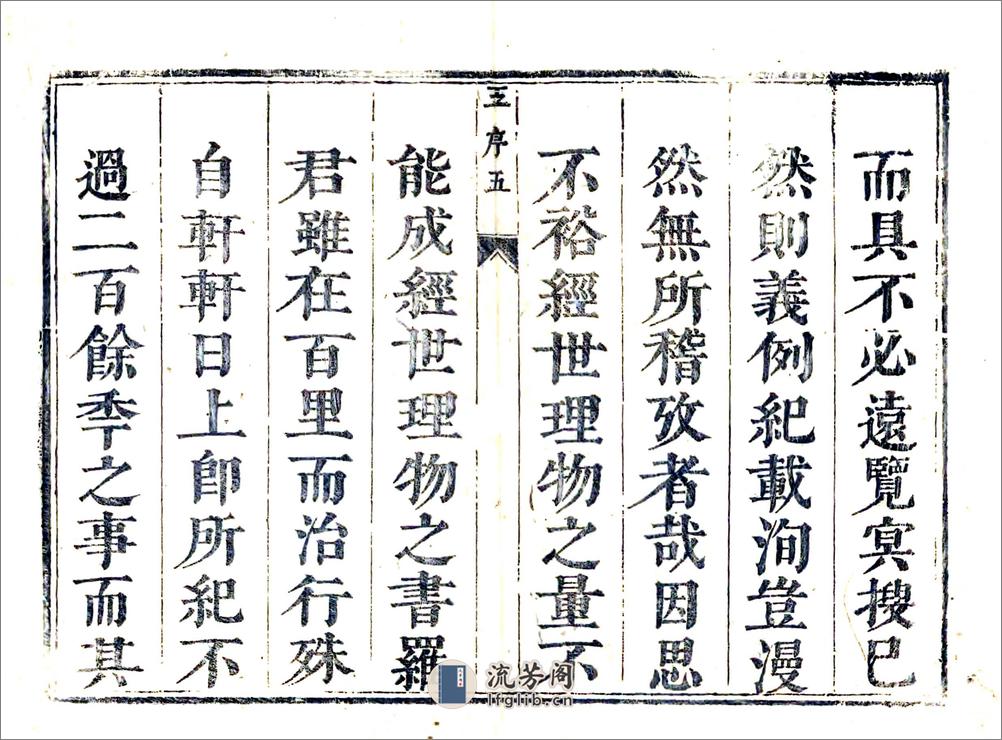 而具不必遠覽冥搜已
然則義例紀載洵豈漫
然無所稽攷者哉因思
不裕經世理物之量不
王序五
能成經世理物之書羅
君雖在百里而治行殊
自軒軒日上卽所紀不
過二百餘季之事而其
流芳阁
lfglib.cn